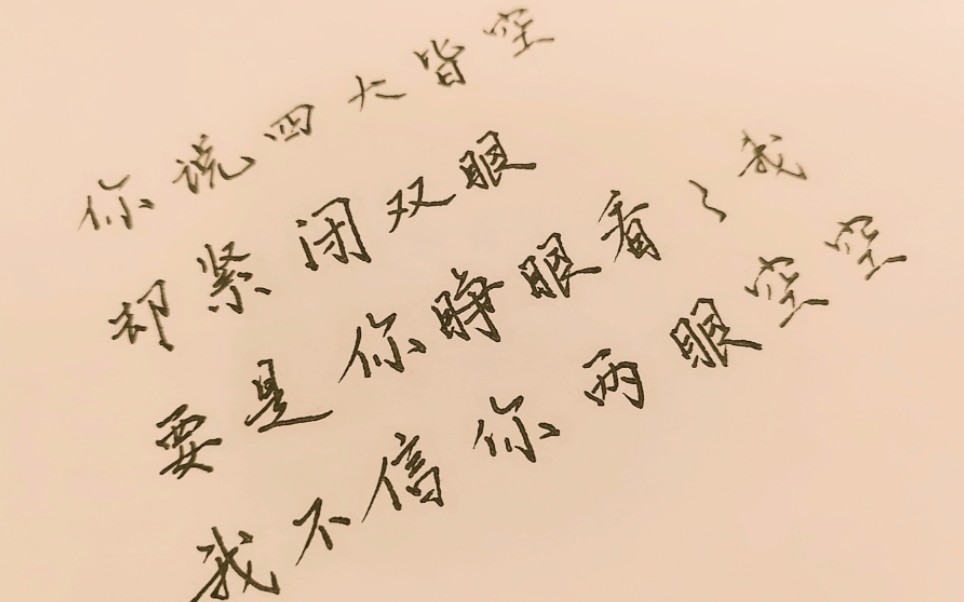 你说四大皆空
却紧闭双眼
要是你睁眼看看我
我不信你两眼空空